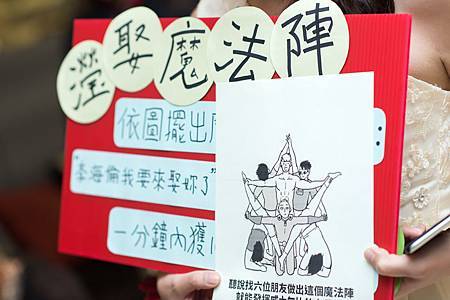 瀅娶魔法陣
依圖擺出
"秦海倫我要來娶妳了"
一分鐘內獲
聽說找六位朋友做出這個魔法陣
就能發揮